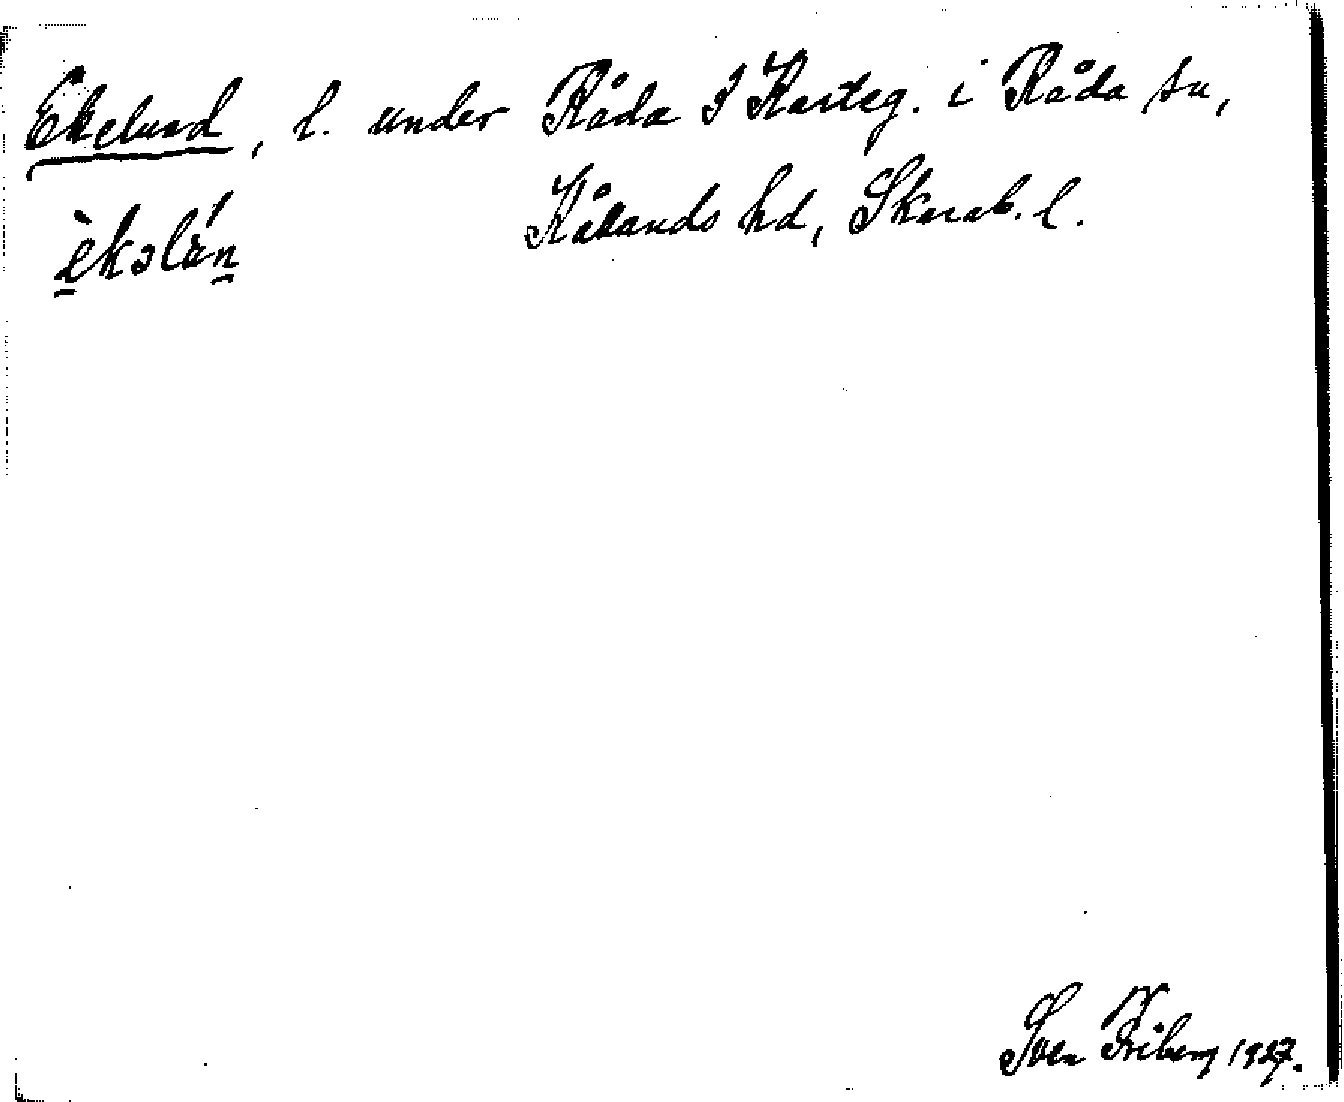 Ekelund, l. under Råda 3 Kasteg. i Råda sn,
Kållands hd, Skarab. l.
èkəlún
Sven Friberg 1927.